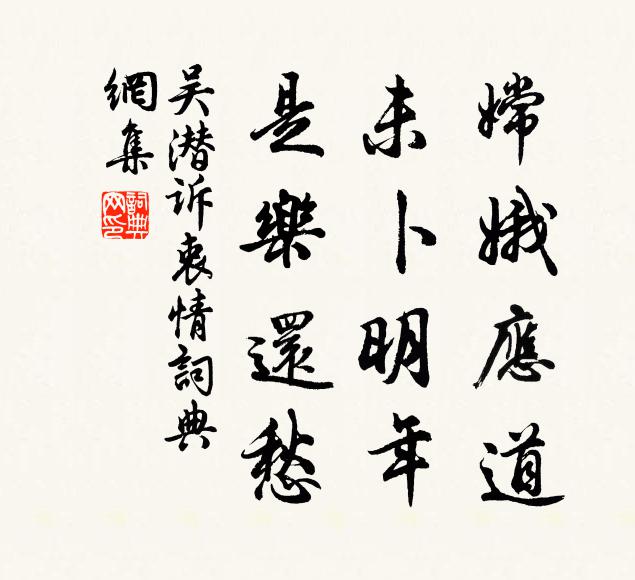 嫦娥應道
未卜明年
是樂還愁
吴潜诉衷情詞典
網集
詞典
网印